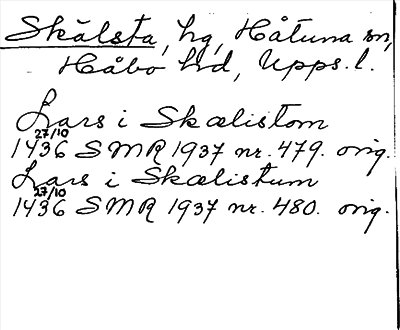 Skälsta, hg, Håtuna sn,
Håbo hd, Upps. l.
Lars i Skælistom
27/10
1436 SMR 1937 nr. 479. orig.
Lars i Skælistum
27/10
1436 SMR 1937 nr. 480. orig.